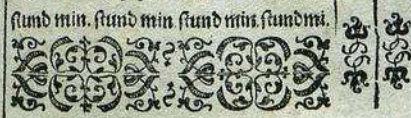 stund min. stund min stund min. stund mi.